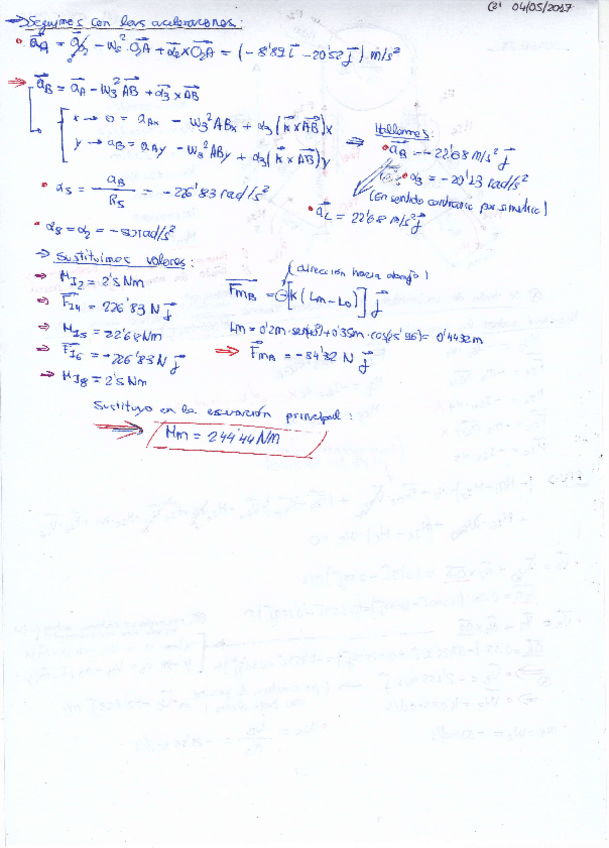 04/05/2017
→ Seguimos con las aceleraciones:
• a⃗_A = a⃗_O2 - ω₂²·O₂A + α⃗₂×O₂A = (-8'89 i⃗ - 20'52 j⃗) m/s²
⇒ a⃗_B = a⃗_A - ω₃² AB + α⃗₃×AB
x → 0 = a_Ax - ω₃² ABx + α₃ (k⃗×AB)x
y → a_B = a_Ay - ω₃² ABy + α₃ (k⃗×AB)y
⇒ Hallamos:
• a⃗_B = -22'68 m/s² j⃗
• α₃ = -20'23 rad/s²
(En sentido contrario por simetría)
• a⃗_L = 22'68 m/s² j⃗
• α₅ = a_B / R₅ = -226'83 rad/s²
• α₈ = α₂ = -50 rad/s²
→ Sustituimos valores:
→ M_I2 = 2'5 Nm
→ F⃗_I4 = 226'83 N j⃗
→ M_I5 = 22'68 Nm
→ F⃗_I6 = -226'83 N j⃗
→ M_I8 = 2'5 Nm
(dirección hacia abajo)
F⃗_mB = ⊖[k(Lm - Lo)] j⃗
→ F⃗_mB = -54'32 N j⃗
Sustituyo en la ecuación principal:
⇒ Mm = 244'44 Nm